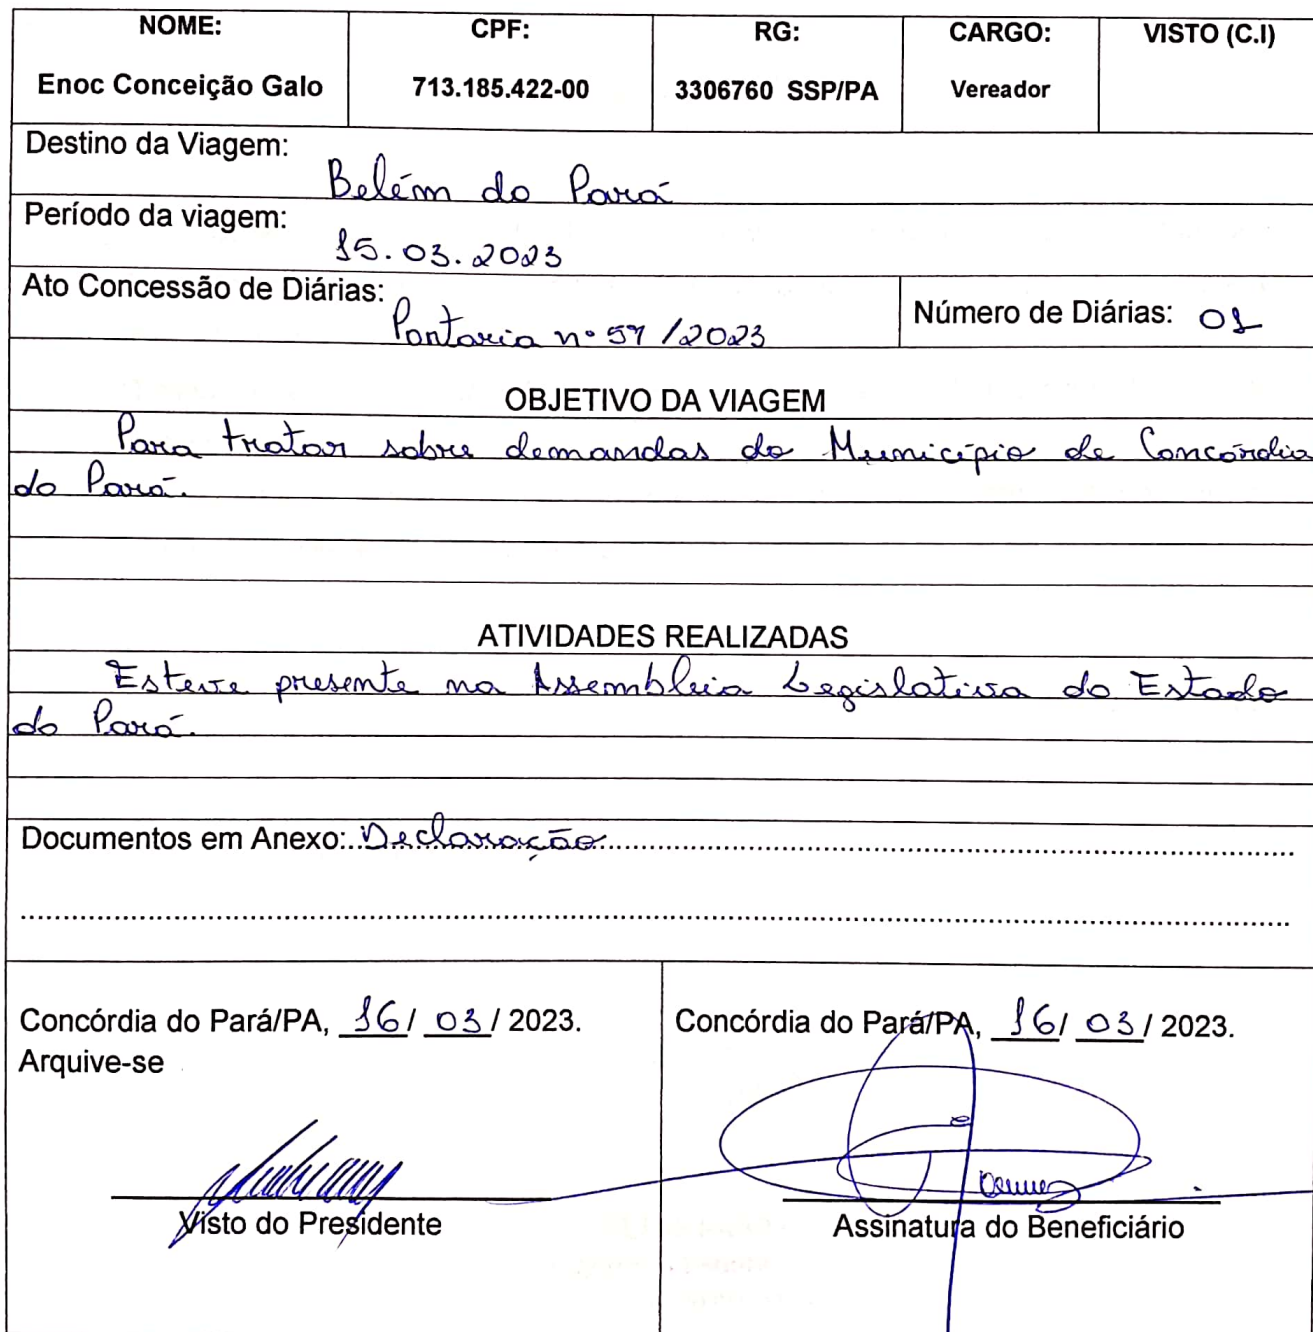 NOME: CPF: RG: CARGO: VISTO (C.I)
Enoc Conceição Galo 713.185.422-00 3306760 SSP/PA Vereador
Destino da Viagem:
Belém do Pará
Período da viagem:
15.03.2023
Ato Concessão de Diárias:
Portaria nº 57/2023
Número de Diárias: 01
OBJETIVO DA VIAGEM
Para tratar sobre demandas do Município de Concórdia
do Pará.
ATIVIDADES REALIZADAS
Esteve presente na Assembleia Legislativa do Estado
do Pará.
Documentos em Anexo: Declaração
Concórdia do Pará/PA, 16/ 03 / 2023.
Arquive-se
Visto do Presidente
Concórdia do Pará/PA, 16/ 03 / 2023.
Assinatura do Beneficiário